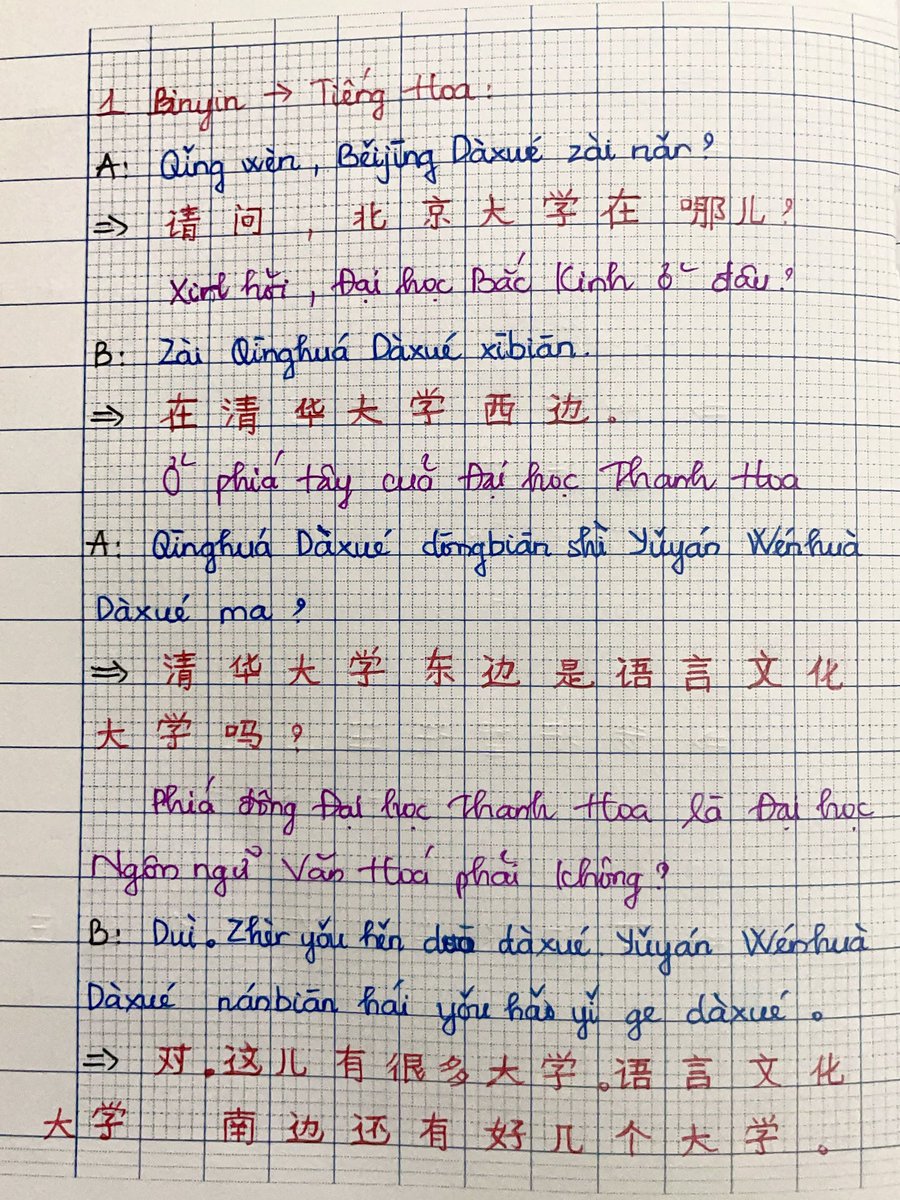 1 Pinyin → Tiếng Hoa:
A: Qǐng wèn, Běijīng Dàxué zài nǎr?
⇒ 请问，北京大学在哪儿？
Xin hỏi, Đại học Bắc Kinh ở đâu?
B: Zài Qīnghuá Dàxué xībiān.
⇒ 在清华大学西边。
Ở phiá tây cuả Đại học Thanh Hoa
A: Qīnghuá Dàxué dōngbiān shì Yǔyán Wénhuà
Dàxué ma?
⇒ 清华大学东边是语言文化
大学吗？
Phiá đông Đại học Thanh Hoa là Đại học
Ngôn ngữ Văn Hoá phải không?
B: Duì. Zhèr yǒu hěn duō dàxué. Yǔyán Wénhuà
Dàxué nánbiān hái yǒu hǎo yǐ ge dàxué.
⇒ 对。这儿有很多大学。语言文化
大学 南边还有好几个大学。